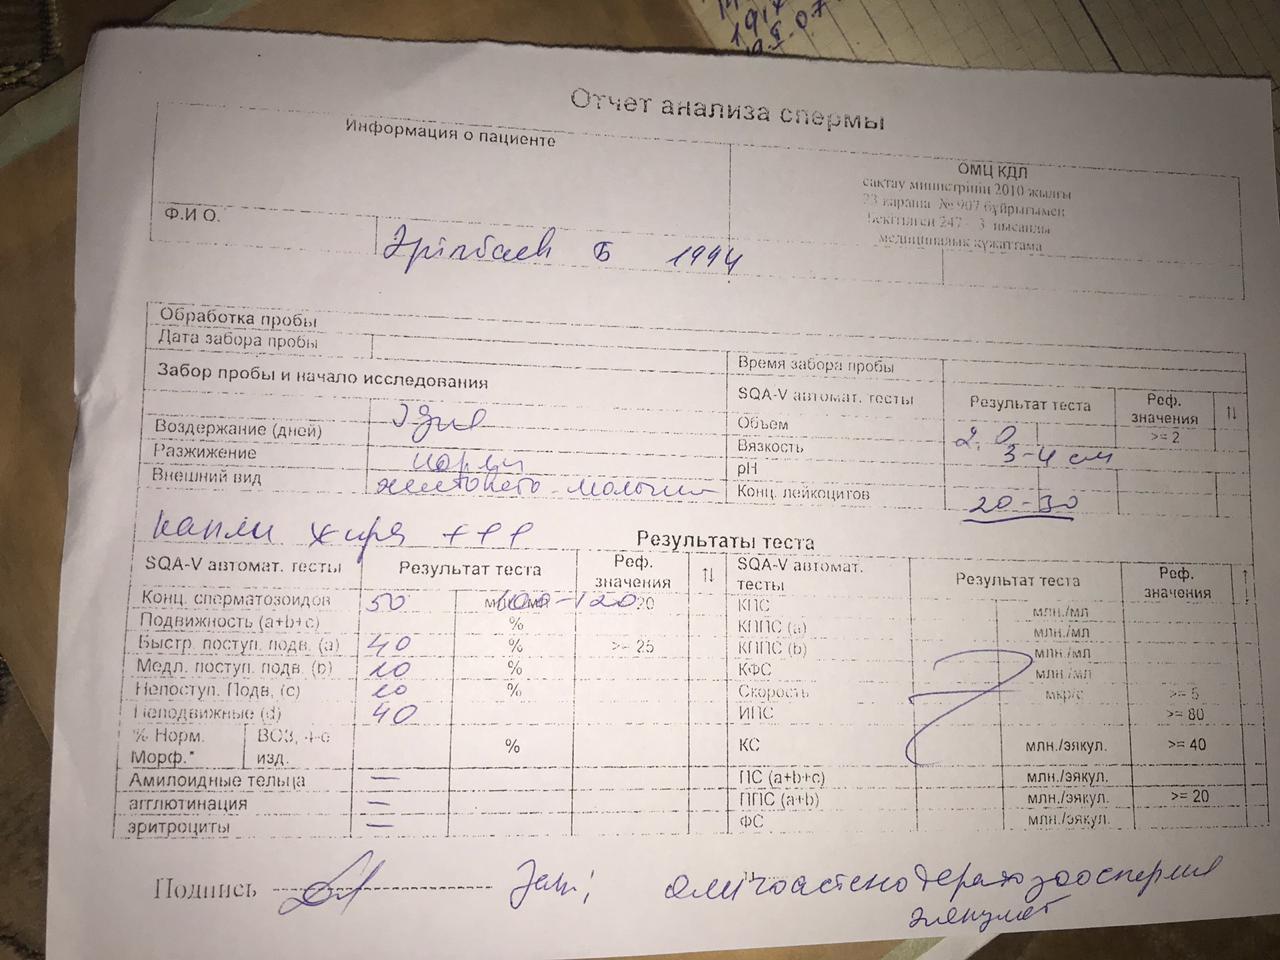 19,
Отчет анализа спермы
Информация о пациенте
ОМЦ КДЛ
сақтау министрінің 2010 жылғы
23 қараша № 907 бұйрығымен
бекітілген 247 - 3 нысанды
медициналық құжаттама
Ф.И О.
Б 1994
Обработка пробы
Дата забора пробы
Время забора пробы
Забор пробы и начало исследования
SQA-V автомат. тесты Результат теста Реф. значения ↑↓
Воздержание (дней)
Объем 2,0 >= 2
Разжижение норм
Вязкость 3-4 см
Внешний вид
pH
Конц. лейкоцитов 20-30
капли жира +++
Результаты теста
SQA-V автомат. тесты Результат теста Реф. значения ↑↓
SQA-V автомат. тесты Результат теста Реф. значения ↑
Конц. сперматозоидов 50 100-120 20
КПС млн./мл
Подвижность (a+b+c) %
КППС (a) млн./мл
Быстр. поступ. подв. (a) 40 % >= 25
КППС (b) млн./мл
Медл. поступ. подв. (b) 10 %
КФС млн./мл
Непоступ. Подв. (c) 10 %
Скорость мкр/с >= 5
Неподвижные (d) 40
ИПС >= 80
% Норм. Морф.* ВОЗ, 4-е изд. %
КС млн./эякул. >= 40
Амилоидные тельца —
ПС (a+b+c) млн./эякул.
агглютинация —
ППС (a+b) млн./эякул. >= 20
эритроциты —
ФС млн./эякул.
Подпись
Зак; олигоастенотератозооспермия
эякулят